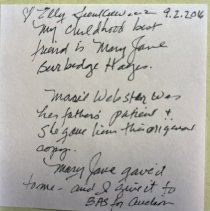 Elly 9.2.2016
My childhood best
friend is Mary Jane
Burbidge Hodges.
Marie Webster was
her fathers' patient &
she gave him the original
copy.
Mary Jane gave it
to me - and I give it to
BAS for auction